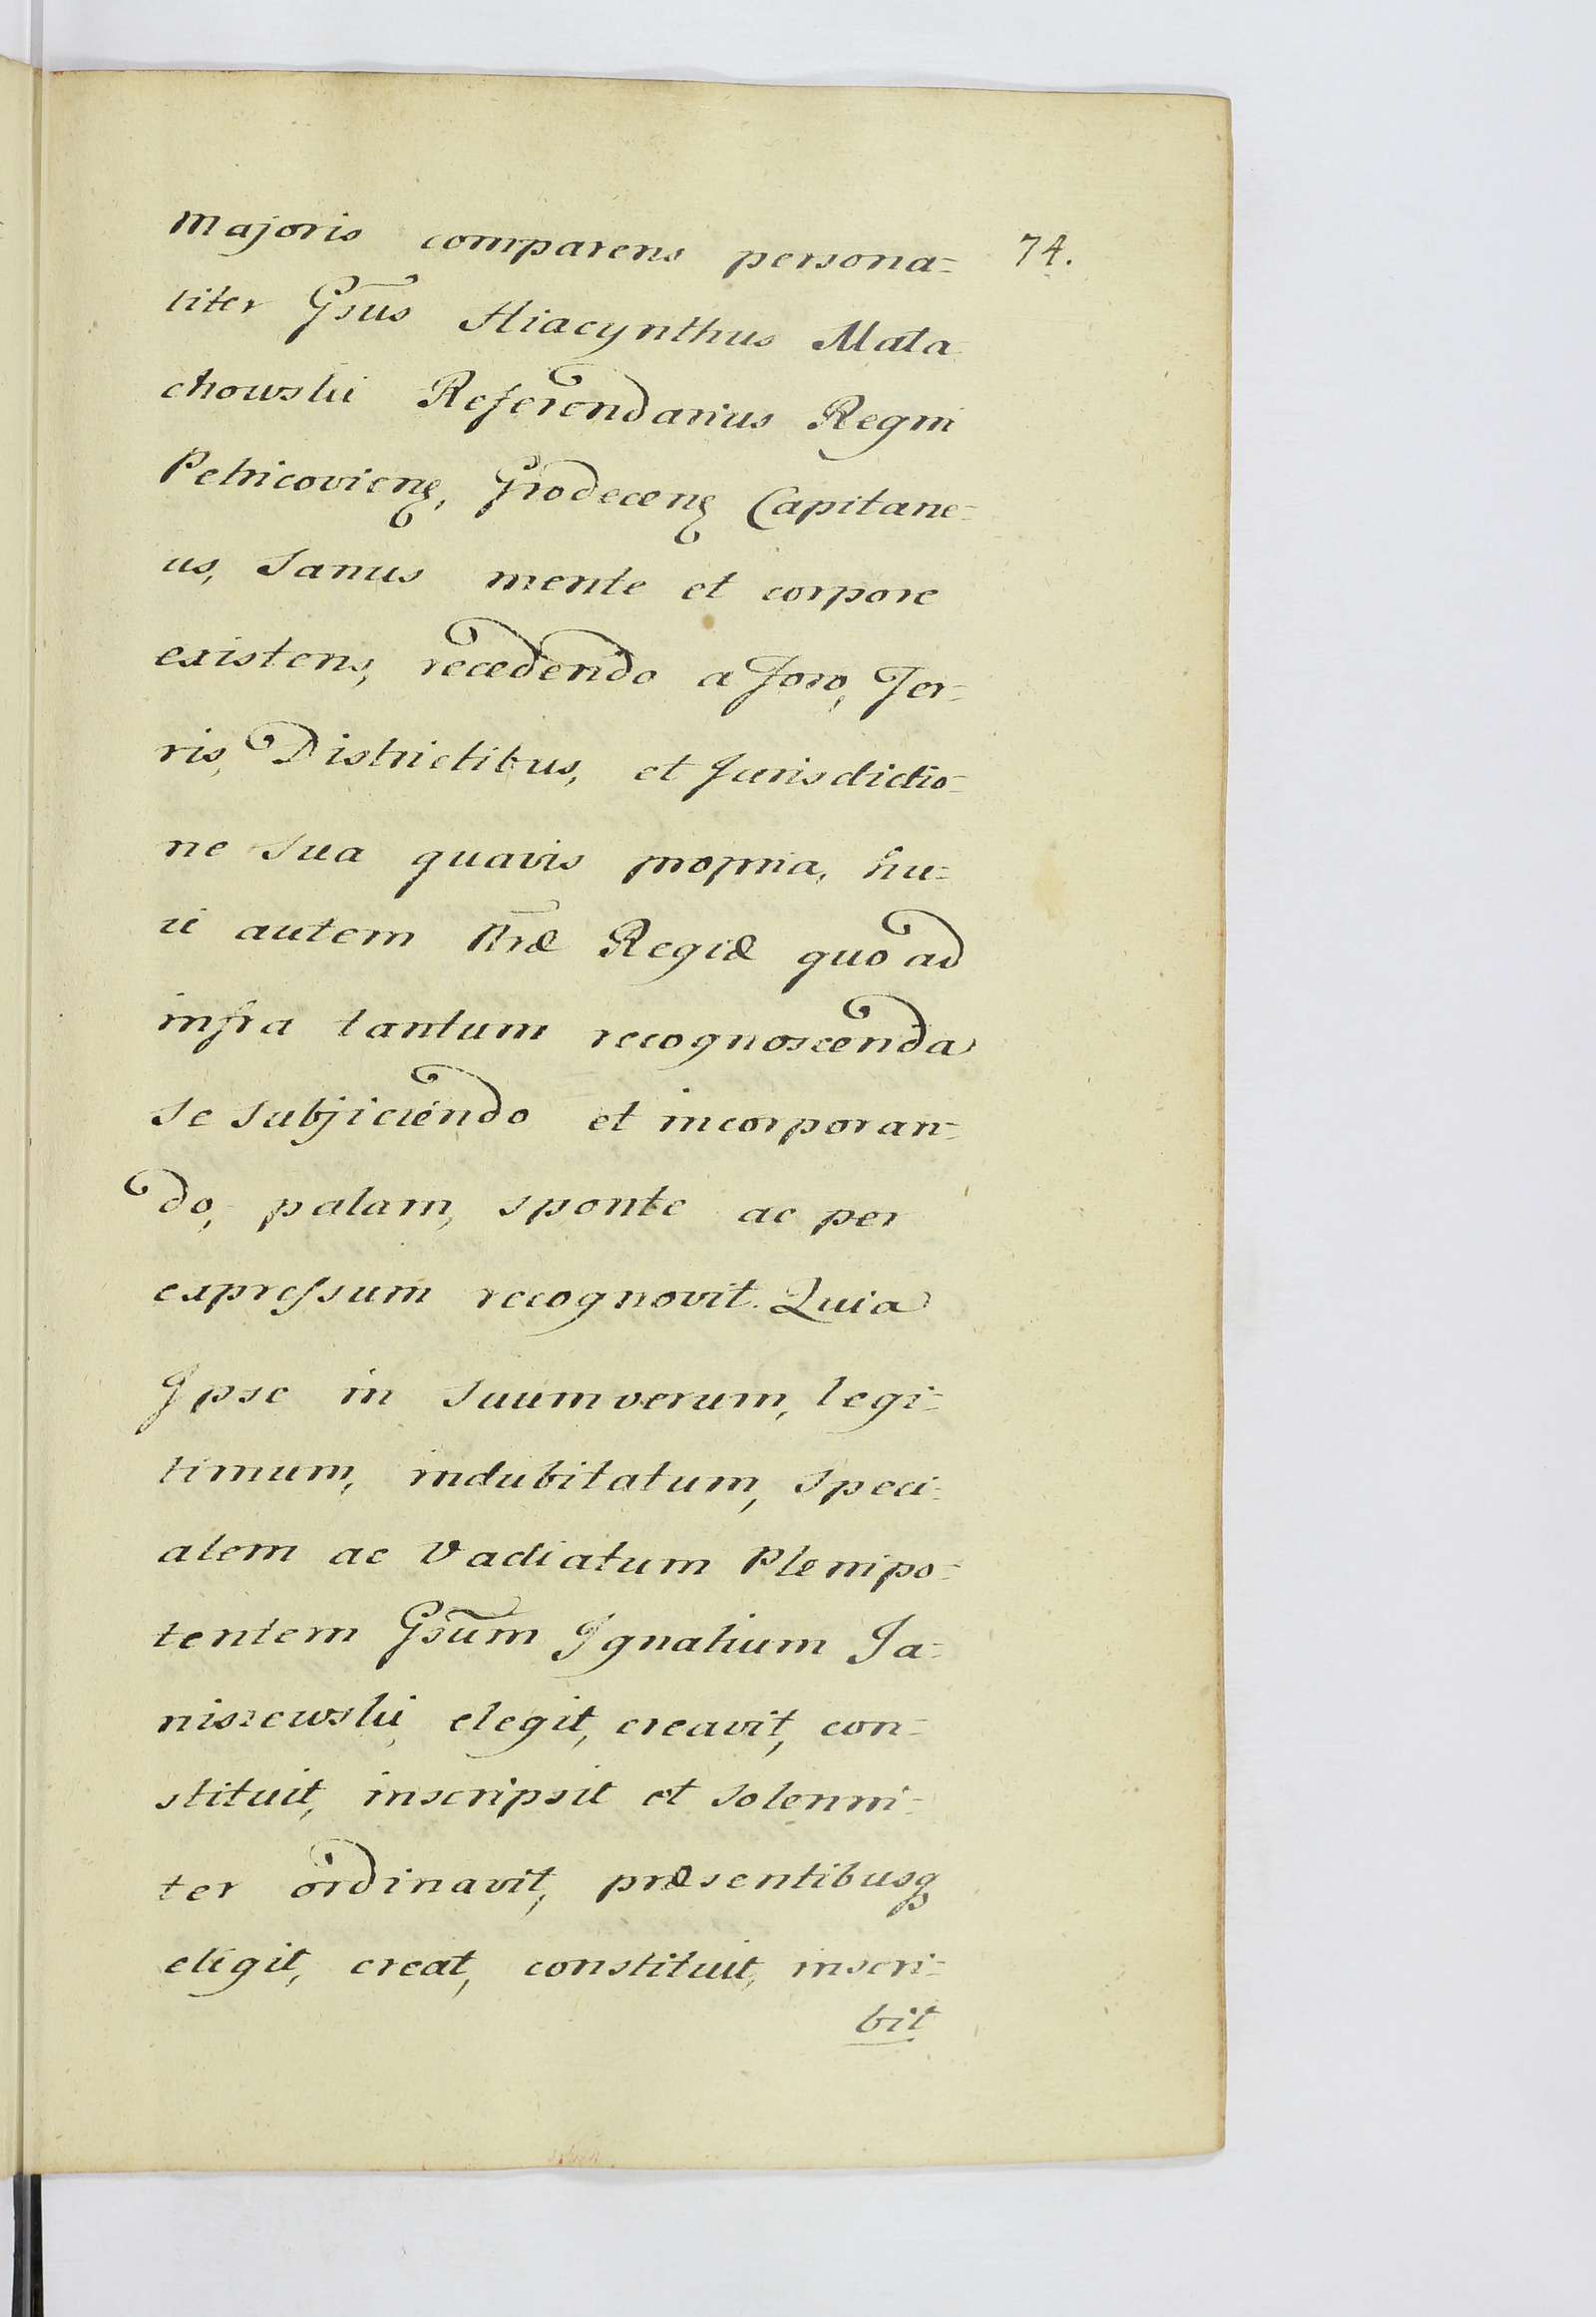 Majoris comparens persona= 74.
liter Gsūs Hiacynthus Mała
chowski Referendarius Regni
Petricovieng, Grodeceng Capitane=
us, Sanus mente et corpore
existens, recedendo a Foro, Ter=
ris, Districtibus, et Jurisdictio=
ne sua quavis propria, hu=
ic autem Mtræ Regiæ quo ad
infra tantum recognoscenda
se subjiciendo et incorporan=
do, palam, sponte ac per
expressum recognovit. Quia
Ipse in suum verum, legi=
timum, indubitatum, speci=
alem ac Vadiatum Plenipo=
tentem Gsūm Ignatium Ja=
niszewski, elegit, creavit, con=
stituit, inscripsit et solenni=
ter ordinavit, præsentibusq
eligit, creat, constituit, inscri=
bit